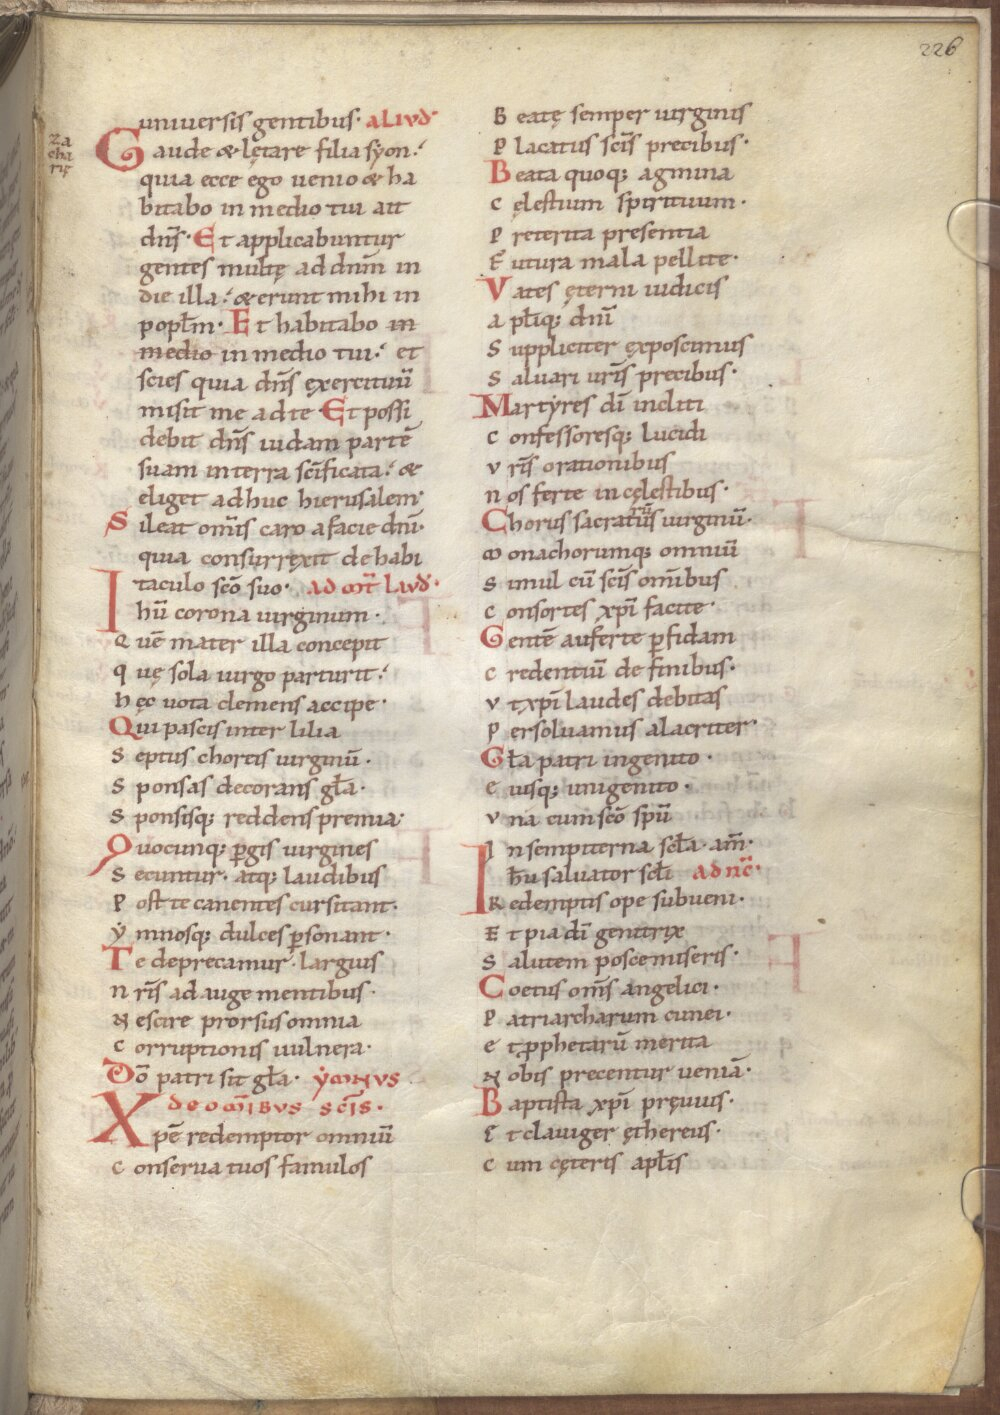 226
uniuersis gentibus· aliud·
Za
cha
rię
Gaude & lętare filia sẏon·
quia ecce ego uenio & ha
bitabo in medio tui ait
dn̅s· Et applicabuntur
gentes multę ad dnm̅ in
die illa· & erunt mihi in
poplm̅· Et habitabo in
medio in medio tui· et
scies quia dn̅s exercituu̅
misit me ad te Et possi
debit dn̅s iudam parte̅
suam in terra sc̅ificata· &
eliget adhuc hierusalem·
Sileat omn̅is caro a facie dn̅i·
quia consurrexit de habi
taculo sc̅o suo· ad mt̅ laud̅·
Ihu̅ corona uirginum·
Que̅ mater illa concepit
quę sola uirgo parturit·
hęc uota clemens accipe·
Qui pascis inter lilia
Septus choreis uirginu̅·
Sponsas decorans gła·
Sponsisq; reddens premia·
Quocunq; p̲gis uirgines
Secuntur· atq; laudibus
Post te canentes cursitant·
ẏmnosq; dulces p̲sonant·
Te deprecamur· largius
nr̅is adauge mentibus·
Nescire prorsus omnia
Corruptionis uulnera·
Do̅ patri sit gła· ẏmnus
de om̅ibus sc̅is·
Xpe̅ redemptor omniu̅
Conserua tuos famulos
Beatę semper uirginis
Placatus sc̅is precibus·
Beata quoq; agmina
cęlestium spirituum·
Preterita presentia
Futura mala pellite·
Vates ęterni iudicis
apłiq; dn̅i
Suppliciter exposcimus
Saluari ur̅is precibus·
Martẏres di̅ incliti
confessoresq; lucidi
vr̅is orationibus
nos ferte in cęlestibus·
rū
Chorus sacratus uirginu̅·
monachorumq; omniu̅
Simul cu̅ sc̅is omn̅ibus
Consortes xpi̅ facite·
Gente̅ auferte p̲fidam
credentiu̅ de finibus·
vt xpi̅ laudes debitas
Persoluamus alacriter·
Gła patri ingenito·
eiusq; unigenito·
vna cum sc̅o spu̅
In sempiterna scła· am̅·
Ihu̅ saluator scłi ad nc̅·
Redemptis ope subueni·
Et pia di̅ genitrix
Salutem posce miseris·
Coetus omn̅s angelici·
Patriarcharum cunei·
et p̲phetaru̅ merita
Nobis precentur uenia̅·
Baptista xpi̅ pręuius·
Et clauiger ęthereus·
Cum cęteris apłis